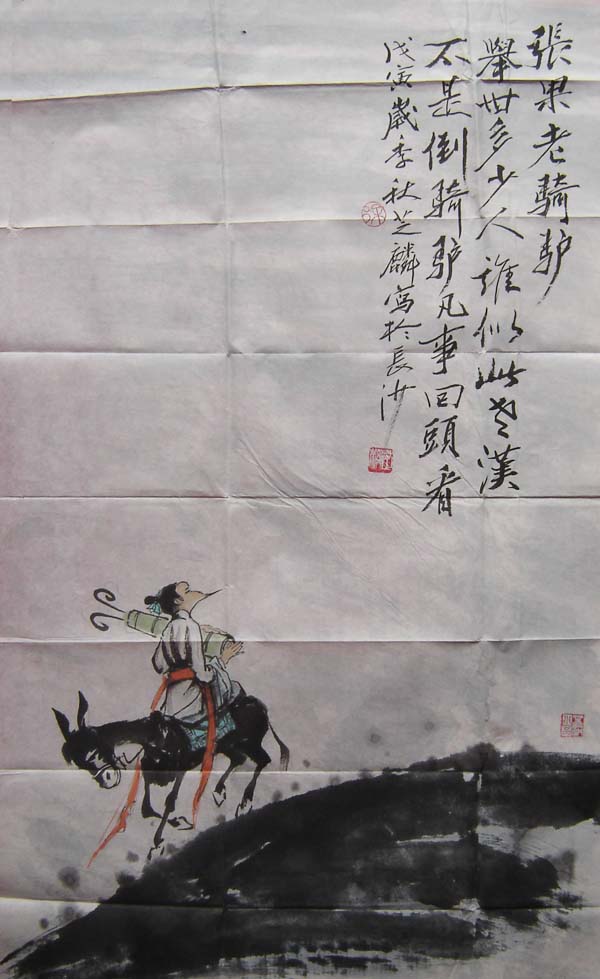 張果老骑驴
舉世多少人誰似此老漢
不是倒骑驴凡事回頭看
戊寅歲季秋芝麟寫於長沙